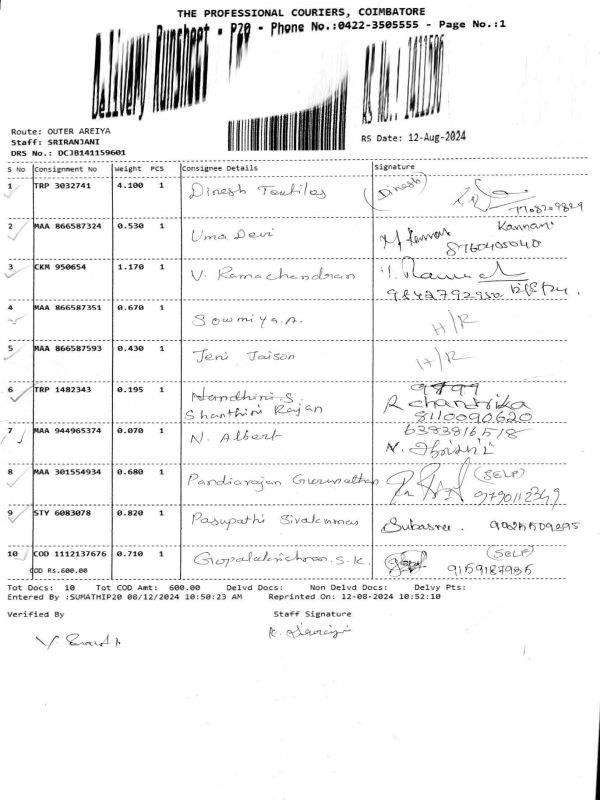 THE PROFESSIONAL COURIERS, COIMBATORE
Delivery Runsheet - P20 - Phone No.:0422-3505555 - Page No.:1
RS No.: 1411596
Route: OUTER AREIYA
Staff: SRIRANJANI
DRS No.: DCJB141159601
RS Date: 12-Aug-2024
S No Consignment No Weight PCS Consignee Details Signature
1 TRP 3032741 4.100 1 Dinesh Textiles Dinesh 7708209829
2 MAA 866587324 0.530 1 Uma Devi Kannan 8760405040
3 CKM 950654 1.170 1 V. Ramachandran 9842792950
4 MAA 866587351 0.670 1 Sowmiya.A. H/R
5 MAA 866587593 0.430 1 Jeni Jaison H/R
6 TRP 1482343 0.195 1 Nandhini.S 9899
Shanthini Rajan R chandrika
8110090620
7 MAA 944965374 0.070 1 N. Albert 6383816518
8 MAA 301554934 0.680 1 Pandiarajan Gurunathan (SELF) 9790112349
9 STY 6083078 0.820 1 Pasupathi Sivakumar Subasree.
10 COD 1112137676 0.710 1 Gopalakrishnan.S.K. (SELF)
COD Rs.600.00 9159187985
Tot Docs: 10 Tot COD Amt: 600.00 Delvd Docs: Non Delvd Docs: Delvy Pts:
Entered By :SUMATHIP20 08/12/2024 10:50:23 AM Reprinted On: 12-08-2024 10:52:10
Verified By Staff Signature